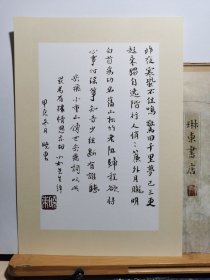 昨夜寒蛩不住鳴驚回千里夢已三更
起來獨自遶階行人悄悄簾外月朧明
白首为功名舊山松竹老阻歸程欲將
心事付瑤箏知音少絃斷有誰聽
岳飛小重山傳世
甲辰冬月
琳東書店